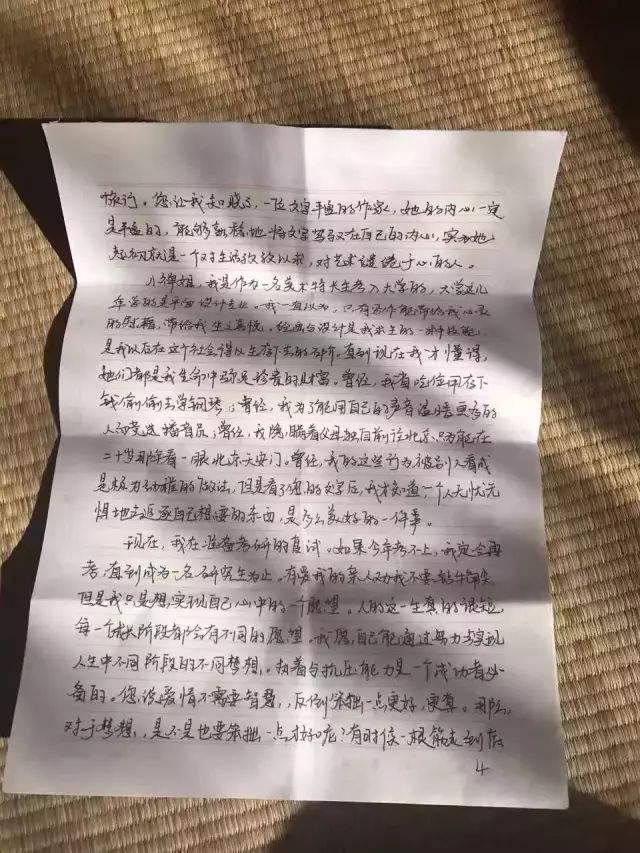 您让我知晓了，一位文字丰盈的作家，她的内心一定
是丰盈的，能够把文字驾驭在自己的内心，实为她
起初就是一个对生活孜孜以求，对艺术缱绻于心的人。
小禅姐，我是作为一名美术特长生考入大学的，大学这几
年学的是平面设计专业。我一直以为，只有写作能带给我心灵
的慰藉，带给我生之喜悦。绘画与设计是我求生的一种技能，
是我以后在这个社会得以生存下去的。直到现在我才懂得，
她们都是我生命中弥足珍贵的财富。曾经，我省吃俭用存下
钱偷偷去学钢琴；曾经，我为了能用自己的声音温暖更多的
人而竞选播音员；曾经，我隐瞒着父母独自前往北京，只为能在
二十岁那年看一眼北京天安门。曾经，我的这些行为被别人看成
是极为幼稚的做法，但是看了您的文字后，我才知道，一个人无忧无
惧地去追逐自己想要的东西，是多么美好的一件事。
现在，我在准备考研的复试。如果今年考不上，我定会再
考，直到成为一名研究生为止。有爱我的亲人劝我不要钻牛角尖
但是我只是想实现自己心中的一个愿望。人的这一生真的很短，
每一个成长阶段都会有不同的愿望。我愿自己能通过努力去实现
人生中不同阶段的不同梦想。执着与抗压能力是一个成功者必
备的。您说爱情不需要智慧，反倒笨拙一点更好，更真。那么，
对于梦想，是不是也要笨拙一点才好呢？有时候一根筋走到底
4